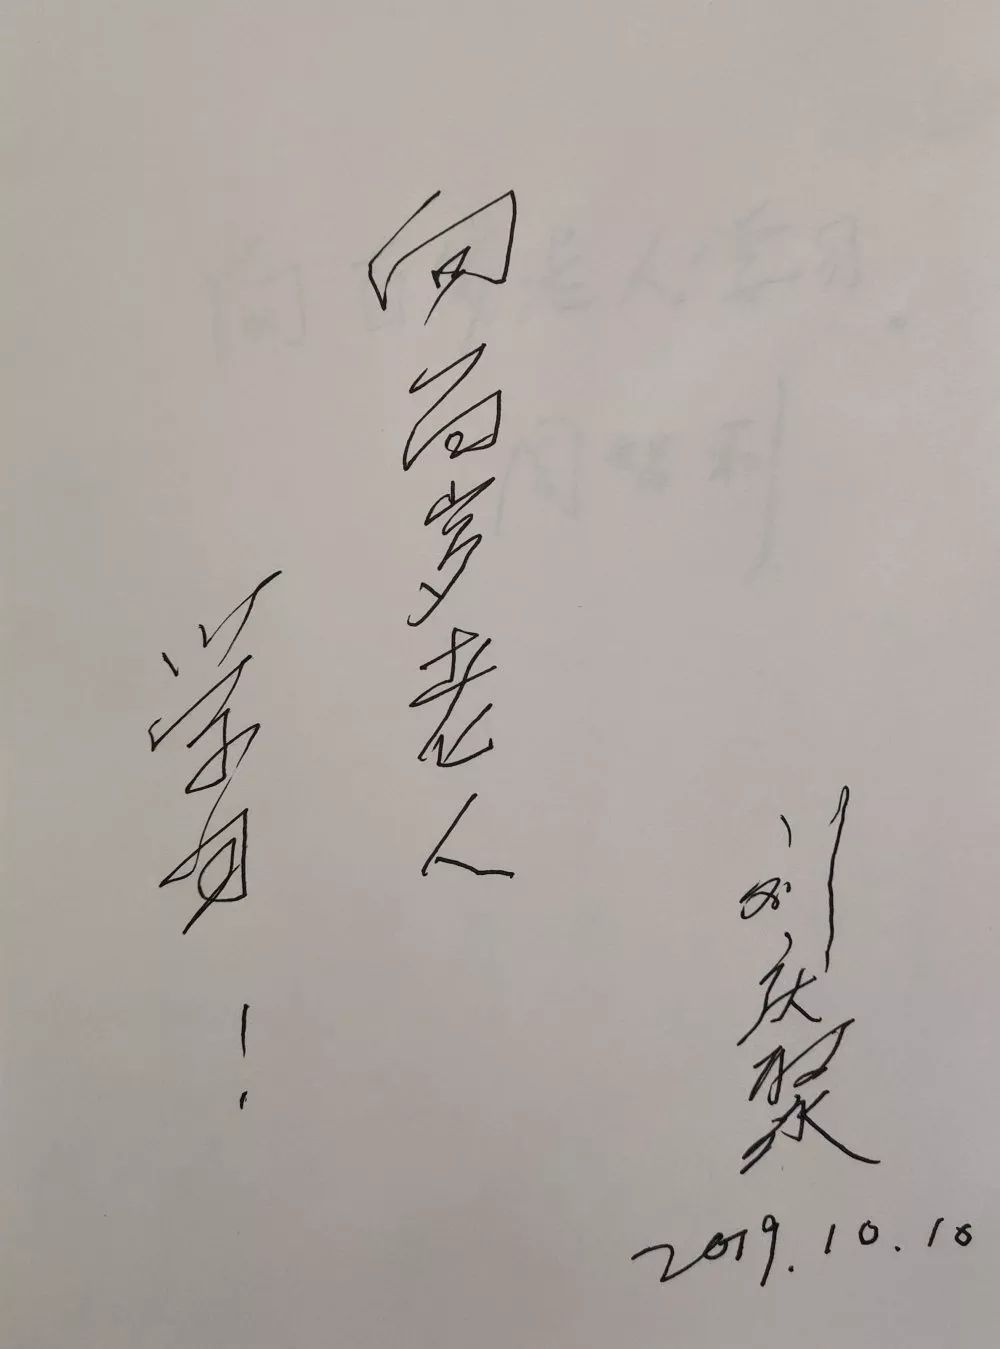 向百岁老人
学习！
刘庆聚
2019.10.10